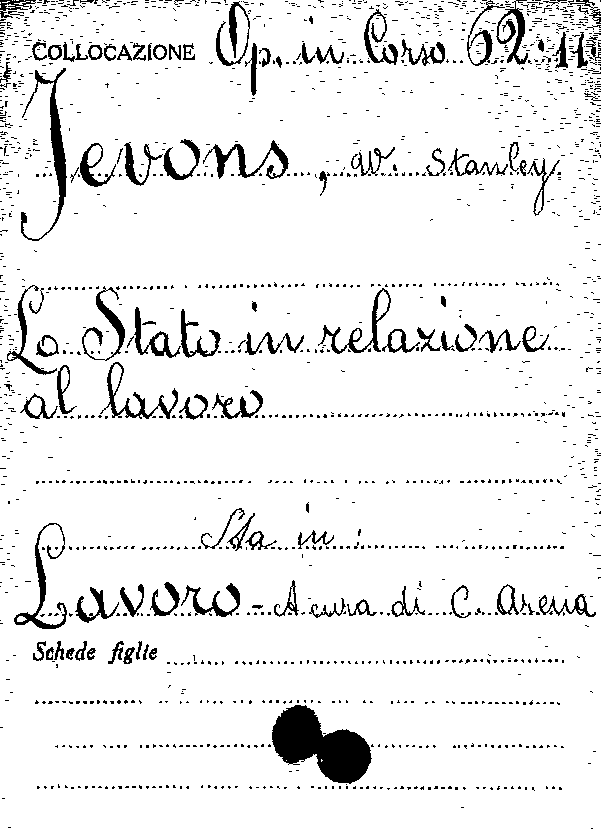 COLLOCAZIONE Op. in Corso 62.11.
Jevons, W. Stanley
Lo Stato in relazione
al lavoro
Sta in:
Lavoro - A cura di C. Arena
Schede figlie